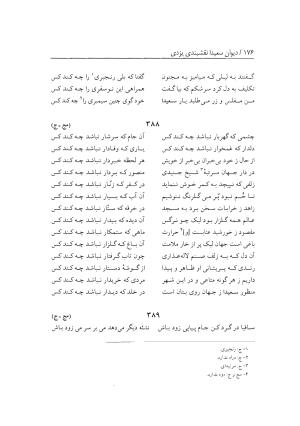 ۱۷۶ / دیوان سعیدا نقشبندی یزدی
گفتند به لیلی که میامیز به مجنون گفتا که بلی رنجبری۱ را چه کند کس
تکلیف به دل کرد سرشکم که بیا گفت همراهی این نوسفری را چه کند کس
من مفلس و زر می‌طلبد یار سعیدا خودگوی چنین سیمبری را چه کند کس
۳۸۸
(مج - ج)
چشمی که گهربار نباشد چه کند کس آن جام که سرشار نباشد چه کند کس
دلدار که غمخوار نباشد چه کند کس یاری که وفادار نباشد چه کند کس
از حال ز خود بی‌خبران بی‌خبر از خویش هر لحظه خبردار نباشد چه کند کس
در دار جهان مرتبهٔ شیخ جنیدی منصور که بر دار نباشد چه کند کس
زلفی که نپیچد به کمر خوش ننماید در کفر که زنار نباشد چه کند کس
تا خُم نبود پُر می گلرنگ ننوشیم آن آب که بسیار نباشد چه کند کس
زاهد ز خرابات سخن برد به مسجد در خرقه که ستار نباشد چه کند کس
عالم همه گلزار بود دیده چو نرگس آن دیده که بیدار نباشد چه کند کس
مقصود ز خورشید عنایت [و]۲ حرارت ماهی که ستمکار نباشد چه کند کس
باغی است جهان لیک پر از خار ملامت آن باغ که گلزار نباشد چه کند کس
آن دل که به زلف صنم لاله‌عذاری چون تاب گرفتار نباشد چه کند کس
رندی که پریشانی او ظاهر و پیدا از گوشهٔ دستار نباشد چه کند کس
داریم ز هر گونه متاعی و در این شهر مردی که خریدار نباشد چه کند کس
منظور سعیدا ز جهان روی بتان است در خلد که دیدار نباشد چه کند کس
۳۸۹
(مج - ج)
ساقیا در گردکن جام پیاپی زود باش نشئه دیگر می‌دهد می بر سر می زود باش
۱- ج: رنجبری.
۲- ج: ندارد.
۴- مج و ج: ندارد.